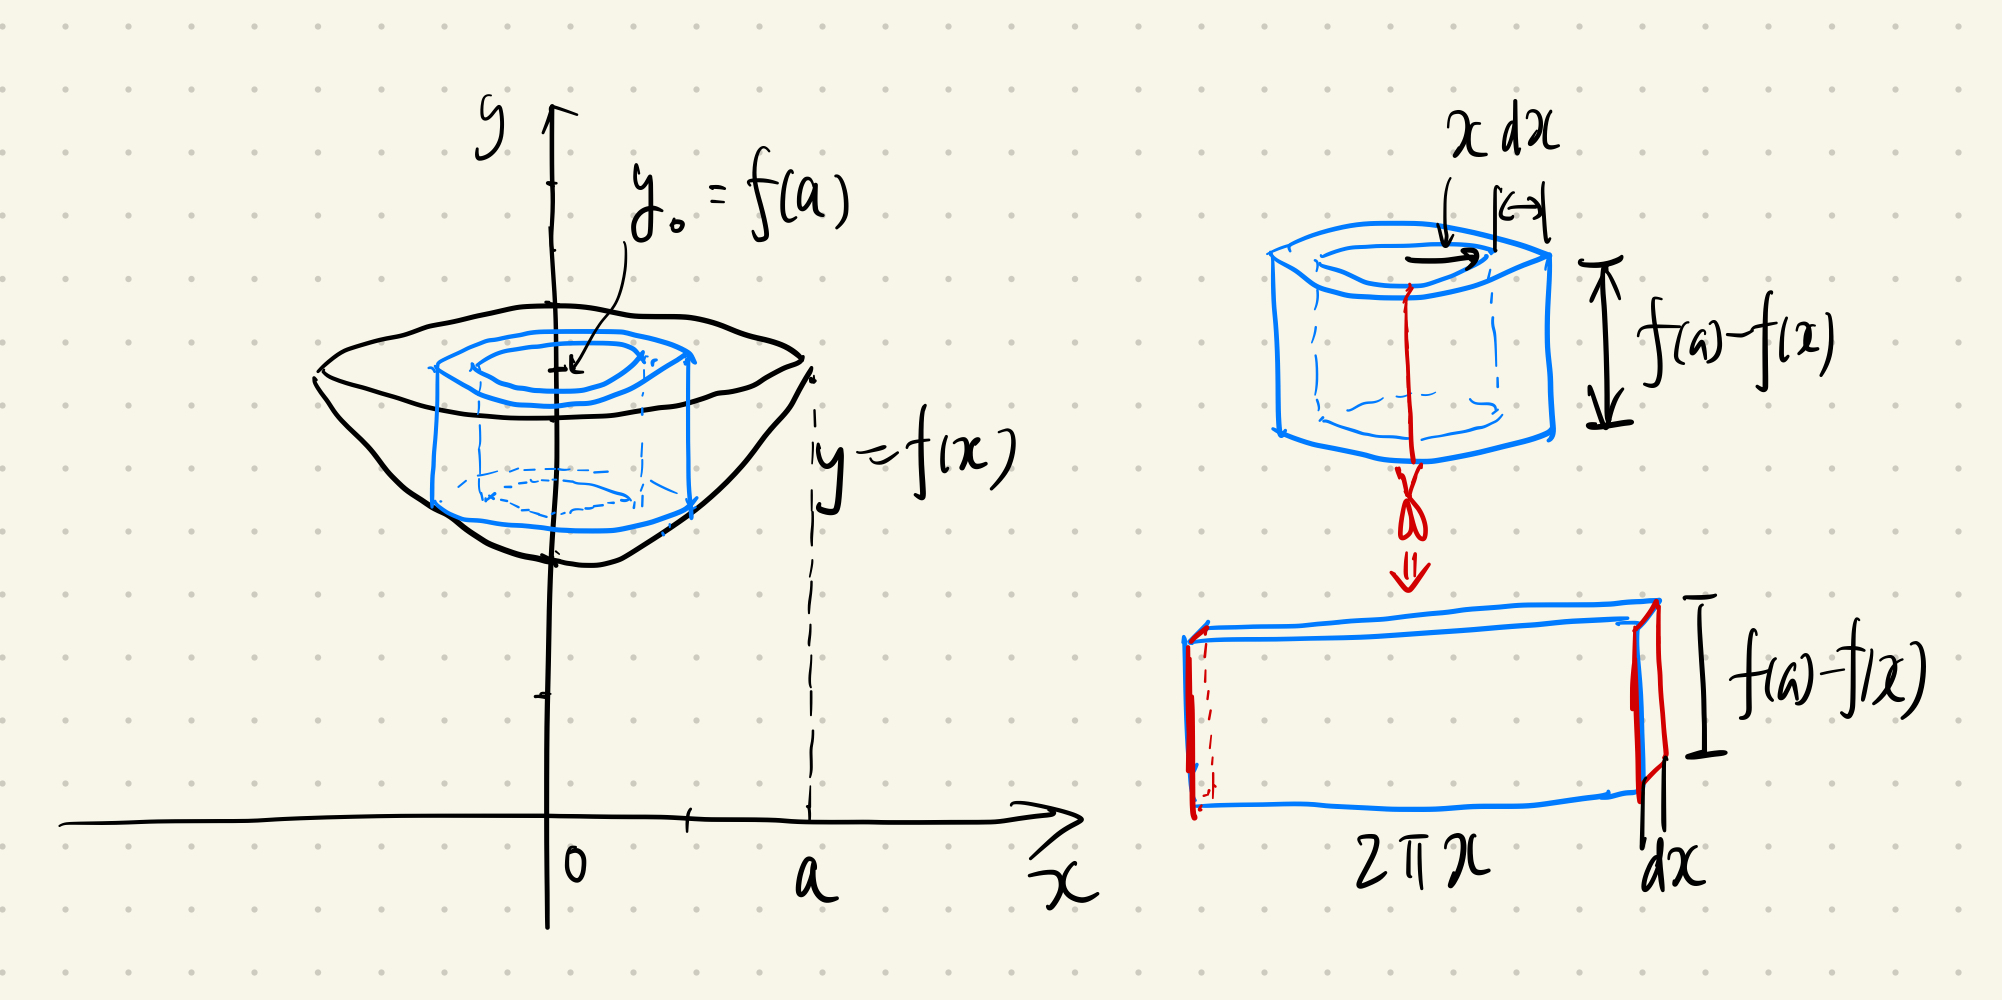 y
y₀ = f(a)
y = f(x)
0
a
x
x dx
f(a) - f(x)
f(a) - f(x)
2πx
dx